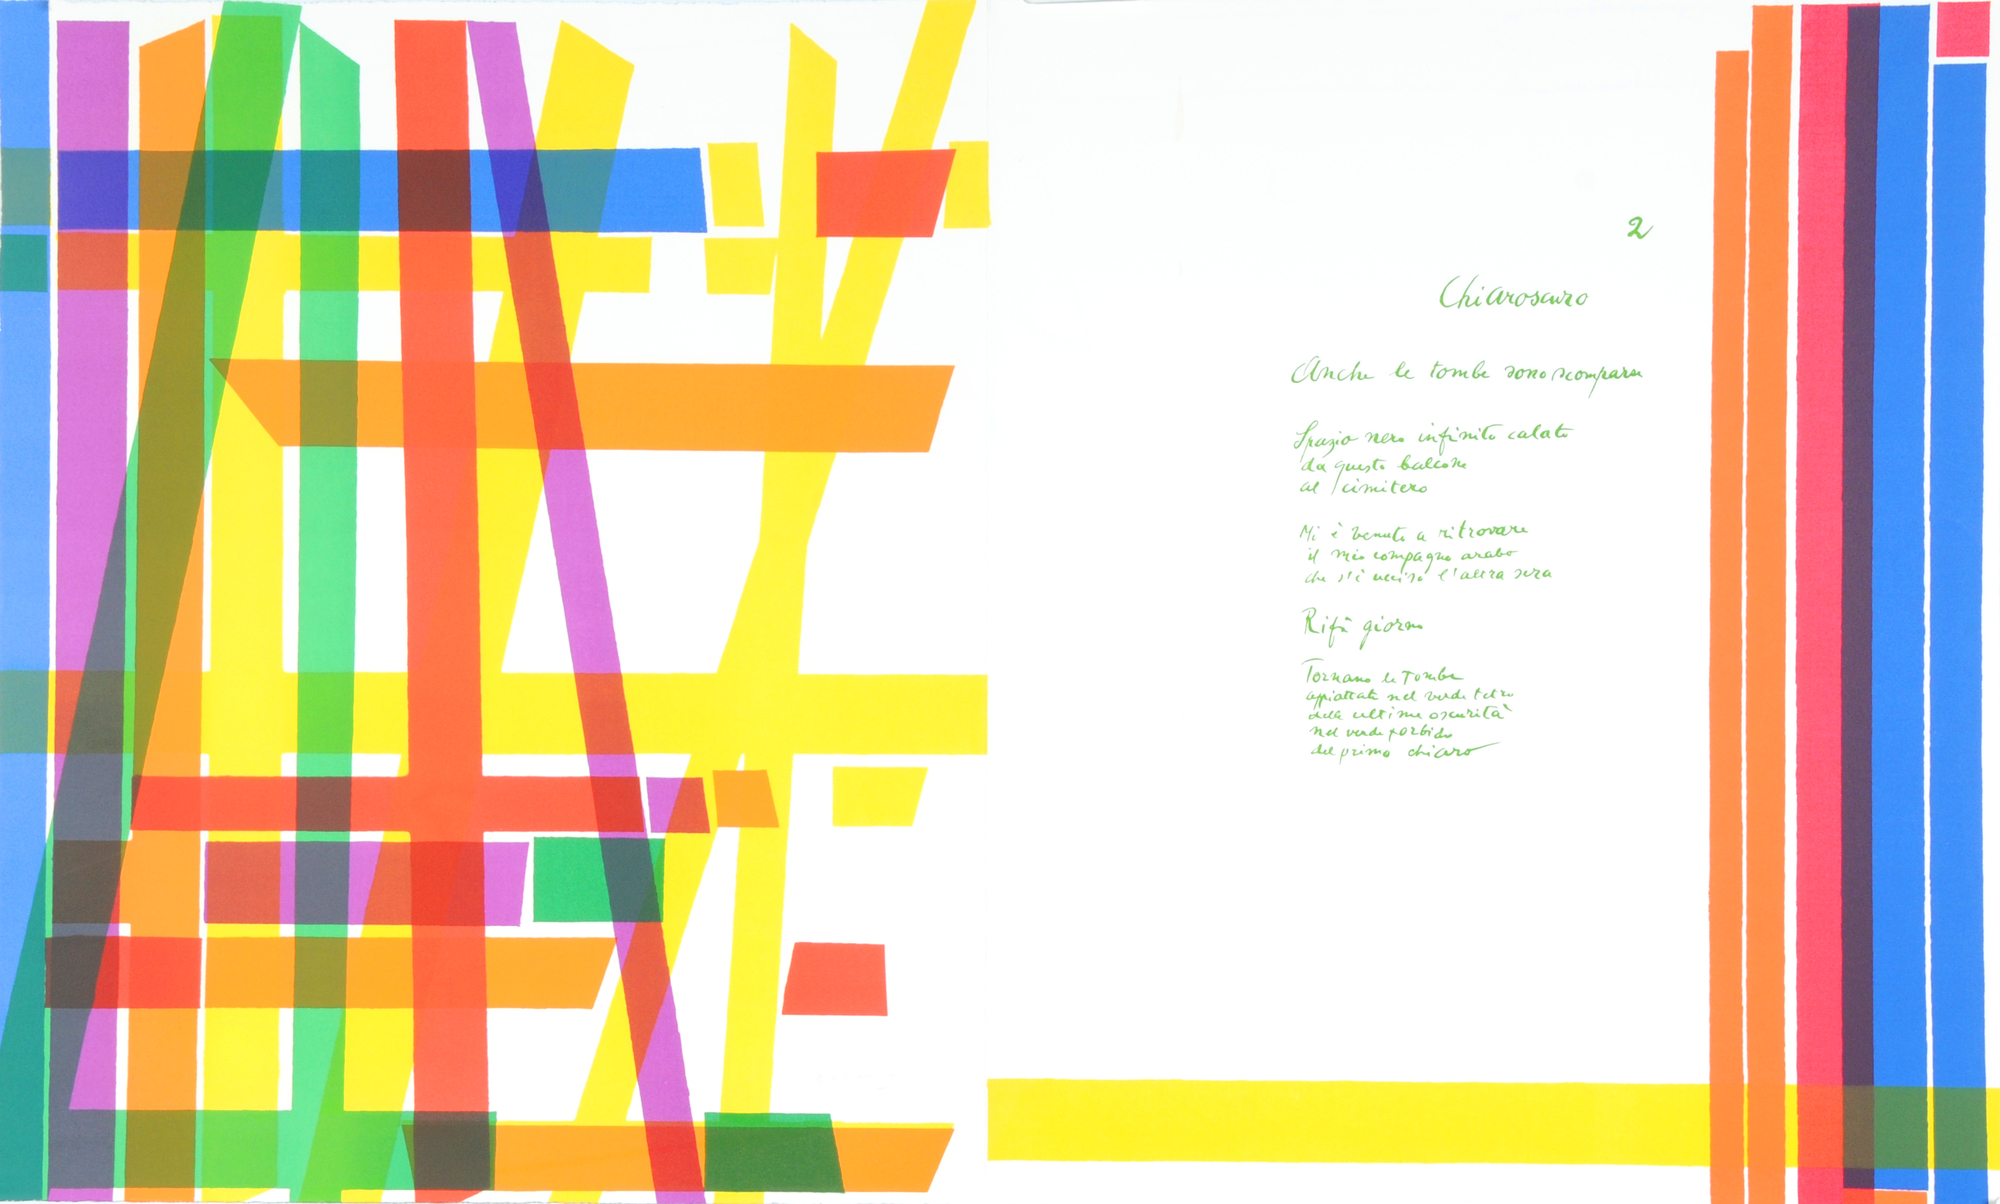 2
Chiaroscuro
Anche le tombe sono scomparse
Spazio nero infinito calato
da questo balcone
al cimitero
Mi è venuto a ritrovare
il mio compagno arabo
che s'è ucciso l'altra sera
Rifà giorno
Tornano le tombe
appiattate nel verde tetro
delle ultime oscurità
nel verde torbido
del primo chiaro